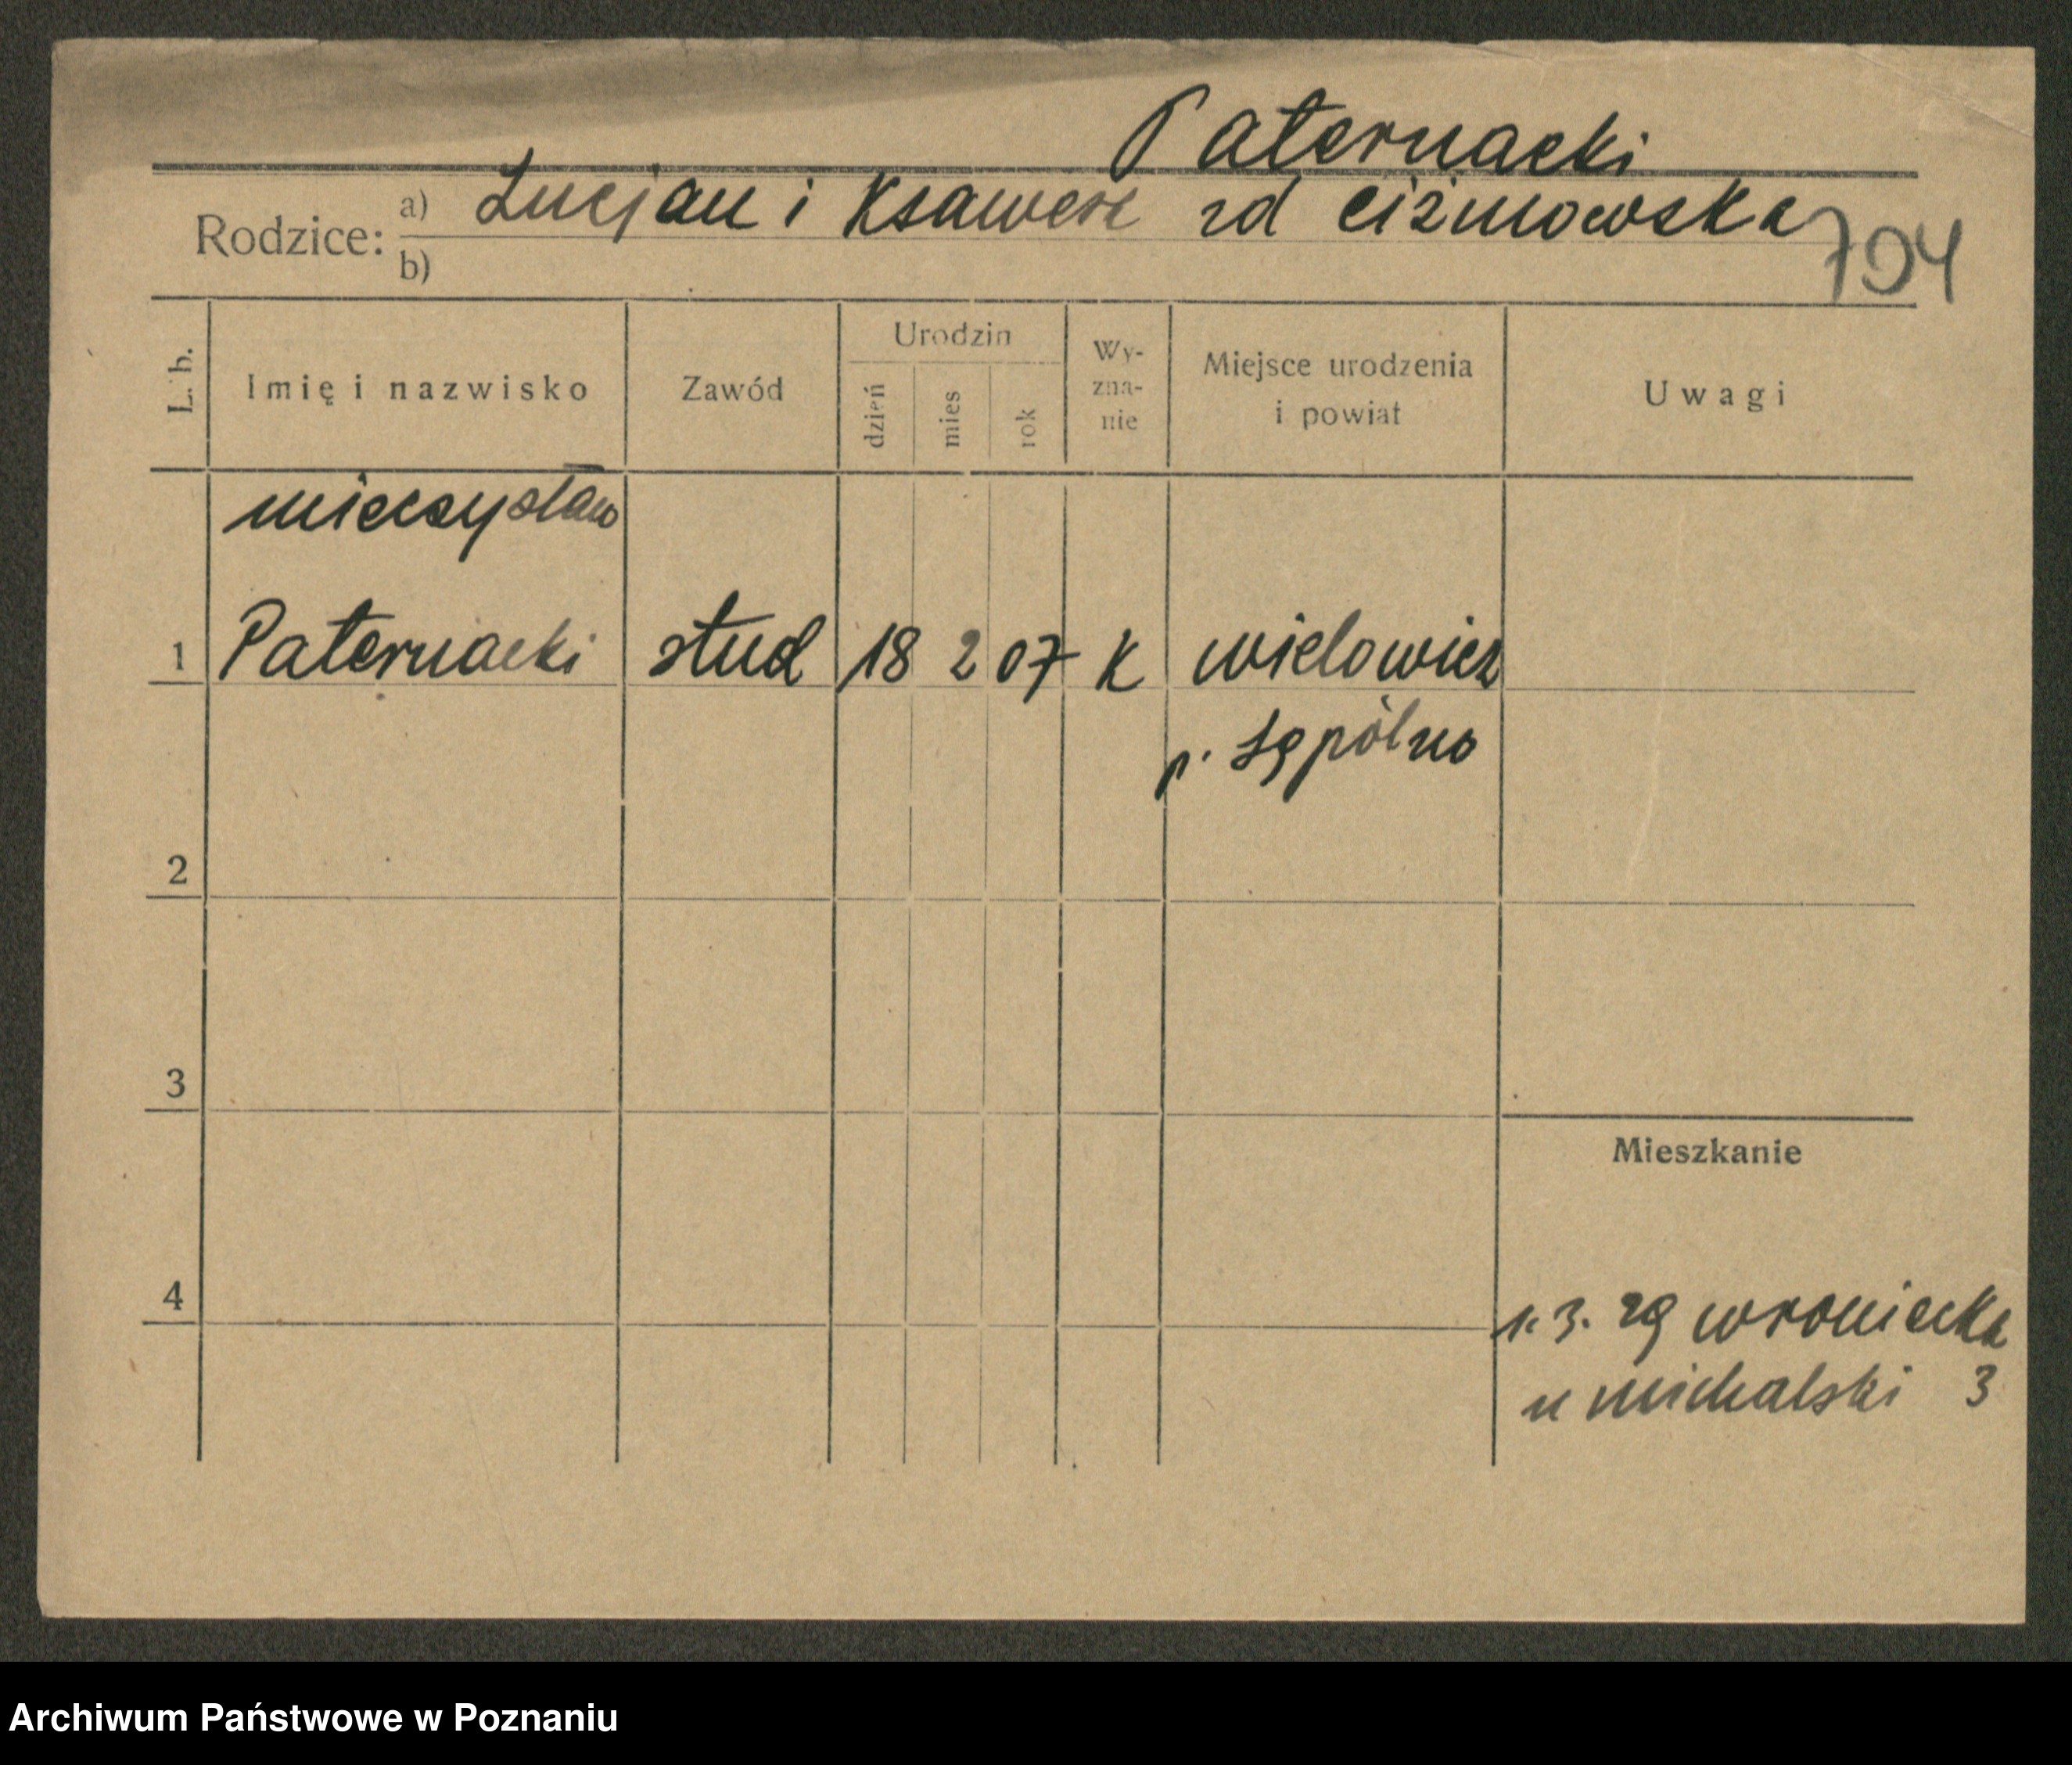 Paternacki
Rodzice: a) Lucjan i Ksawera zd ciżmowska
b)
704
L. b. Imię i nazwisko Zawód Urodzin dzień mies rok Wy-zna-nie Miejsce urodzenia i powiat Uwagi
mieczysław
1 Paternacki stud 18 2 07 K wielowicz
p. Sępólno
2
3
Mieszkanie
4
1.3.29 wroniecka
u michalski 3
Archiwum Państwowe w Poznaniu